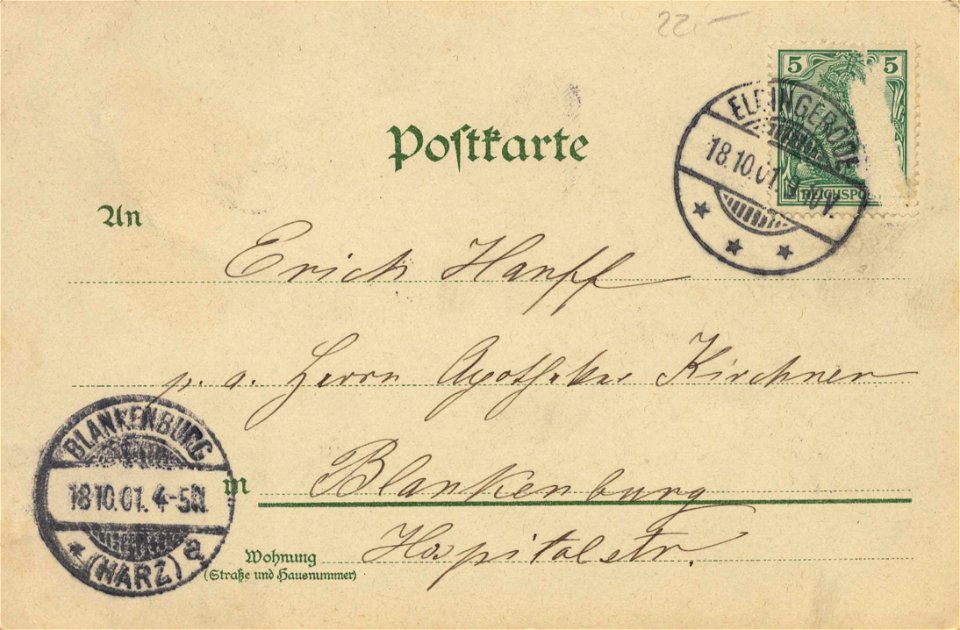 22.-
5 5
REICHSPO
ELBINGERODE
18.10.01. 9-10V.
Postkarte
An
Erich Hanff
p. a. Herrn Apotheker Kirchner
in Blankenburg
Hospitalstr.
Wohnung
(Straße und Hausnummer)
BLANKENBURG
18.10.01. 4-5N.
* (HARZ) a